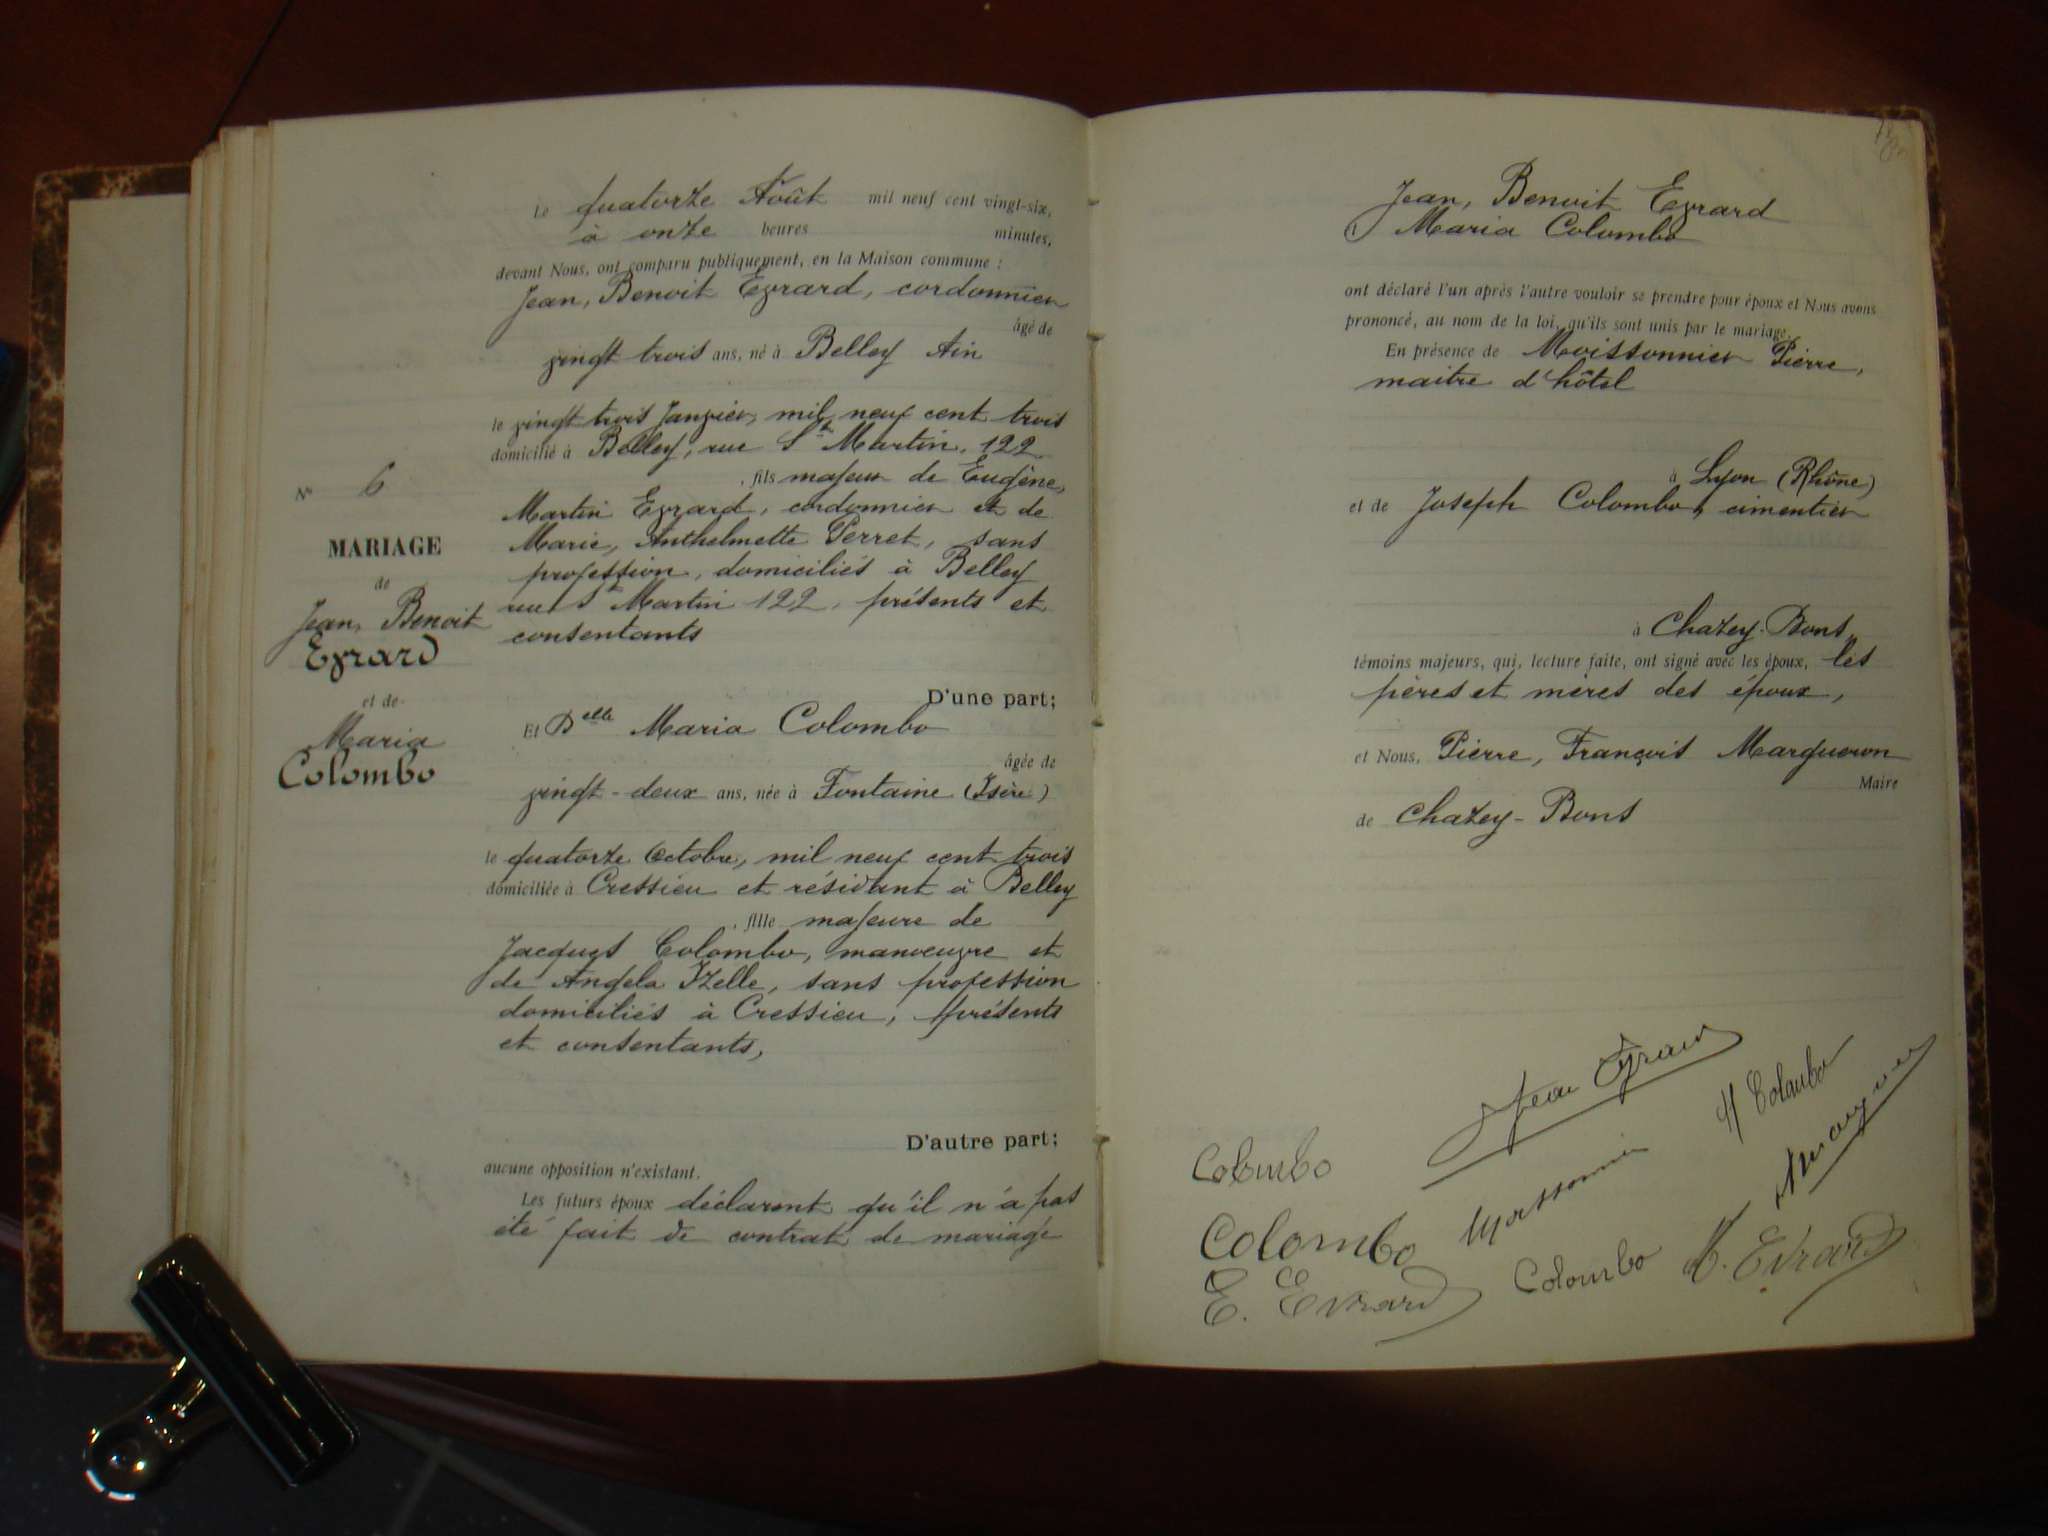 Le quatorze Août mil neuf cent vingt-six,
à onze heures minutes,
devant Nous, ont comparu publiquement, en la Maison commune :
Jean, Benoit Evrard, cordonnier
âgé de
vingt trois ans, né à Belley Ain
le vingt trois Janvier, mil neuf cent trois
domicilié à Belley, rue St Martin, 122
, fils majeur de Eugène,
Martin Evrard, cordonnier et de
Marie, Anthelmette Perret, sans
profession, domiciliés à Belley
rue St Martin 122, présents et
consentants
N° 6
MARIAGE
de
Jean, Benoit
Evrard
et de
Maria
Colombo
D'une part;
Et Delle Maria Colombo
âgée de
vingt-deux ans, née à Fontaine (Isère)
le quatorze Octobre, mil neuf cent trois
domiciliée à Cressieu et résidant à Belley
, fille majeure de
Jacques Colombo, manoeuvre et
de Angela Izelle, sans profession
domiciliés à Cressieu, présents
et consentants,
D'autre part;
aucune opposition n'existant.
Les futurs époux déclarent qu'il n'a pas
été fait de contrat de mariage
Jean, Benoit Evrard
Maria Colombo
ont déclaré l'un après l'autre vouloir se prendre pour époux et Nous avons
prononcé, au nom de la loi, qu'ils sont unis par le mariage.
En présence de Moissonnier Pierre,
maitre d'hôtel
à Lyon (Rhône)
et de Joseph Colombo, cimentier
à Chazey-Bons
témoins majeurs, qui, lecture faite, ont signé avec les époux, les
pères et mères des époux,
et Nous, Pierre, François Margueron
Maire
de Chazey-Bons
Jean Evrard
M Colombo
Colombo
Colombo
Colombo
E. Evrard
M. Evrard